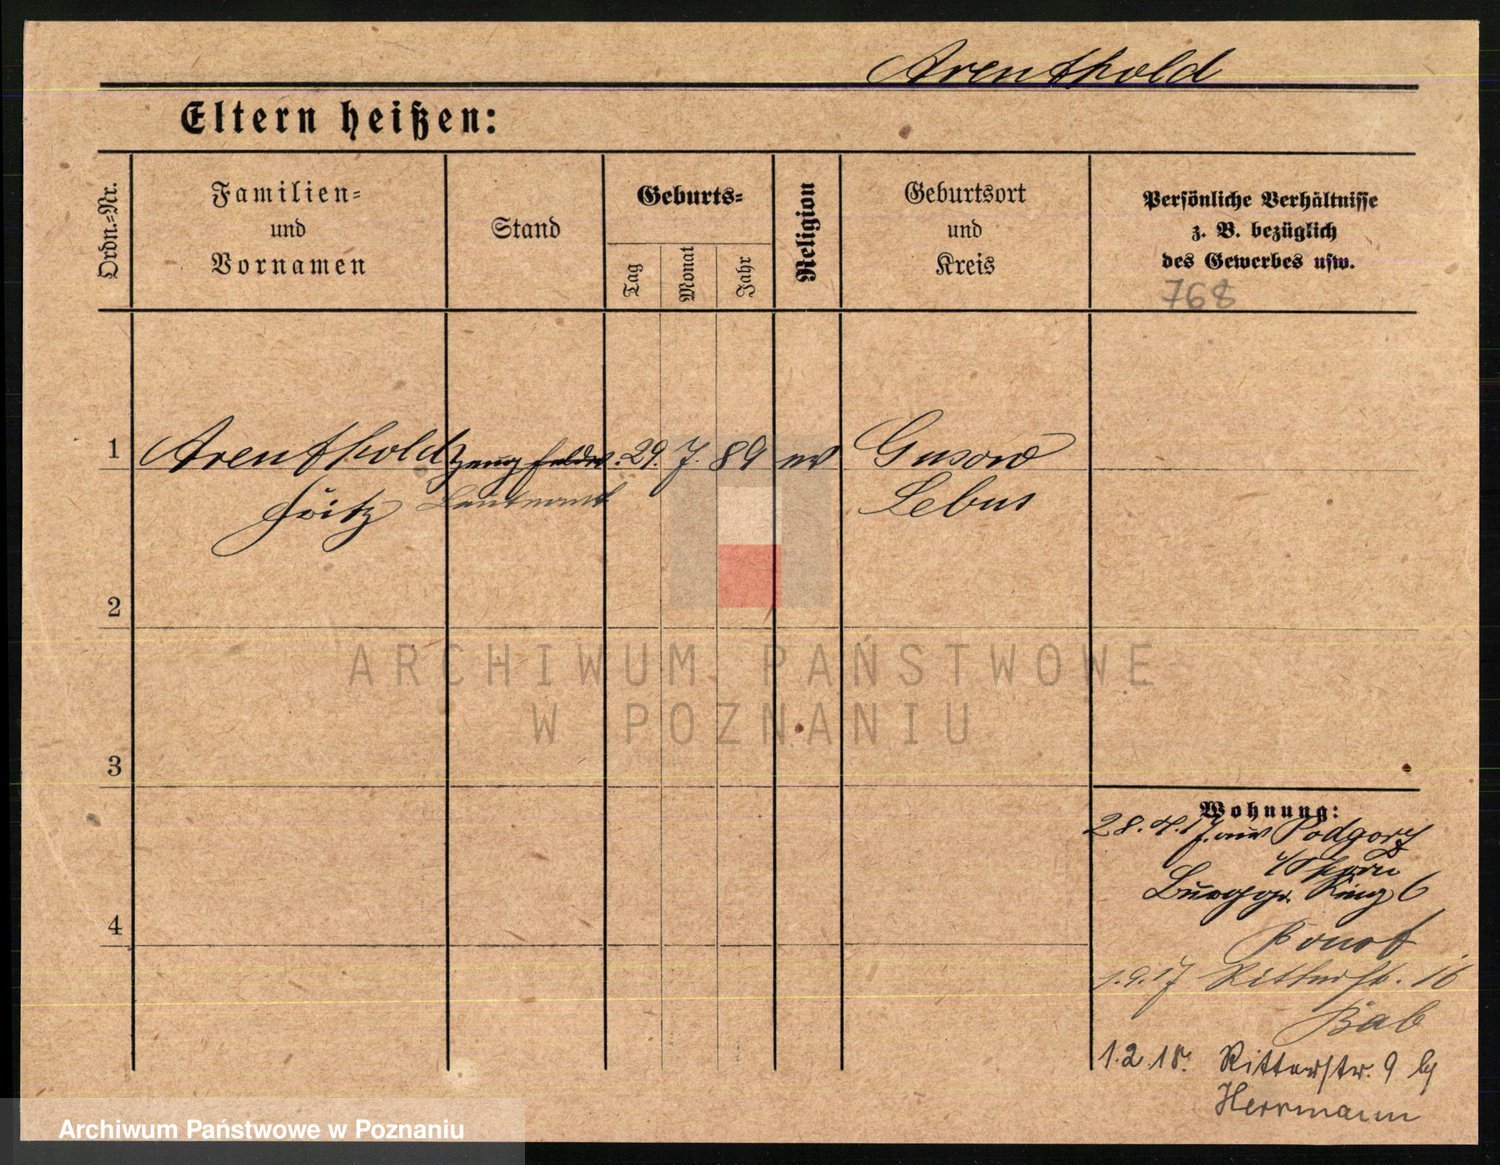 Arenthold
Eltern heißen:
Ordn.=Nr.
Familien=
und
Vornamen
Stand
Geburts=
Tag
Monat
Jahr
Religion
Geburtsort
und
Kreis
Persönliche Verhältnisse
z. B. bezüglich
des Gewerbes usw.
768
1
Arenthold
Fritz
Zeug feldw.
Leutnant
29. 7. 89
ev
Gusow
Lebus
2
3
4
Wohnung:
28. 4. 17. aus Podgorz
Thorn
Burggr. Ring 6
1.9.17 Ritterstr. 16
Bab
1.2.18. Ritterstr. 9 b/
Herrmann
ARCHIWUM PAŃSTWOWE
W POZNANIU
Archiwum Państwowe w Poznaniu